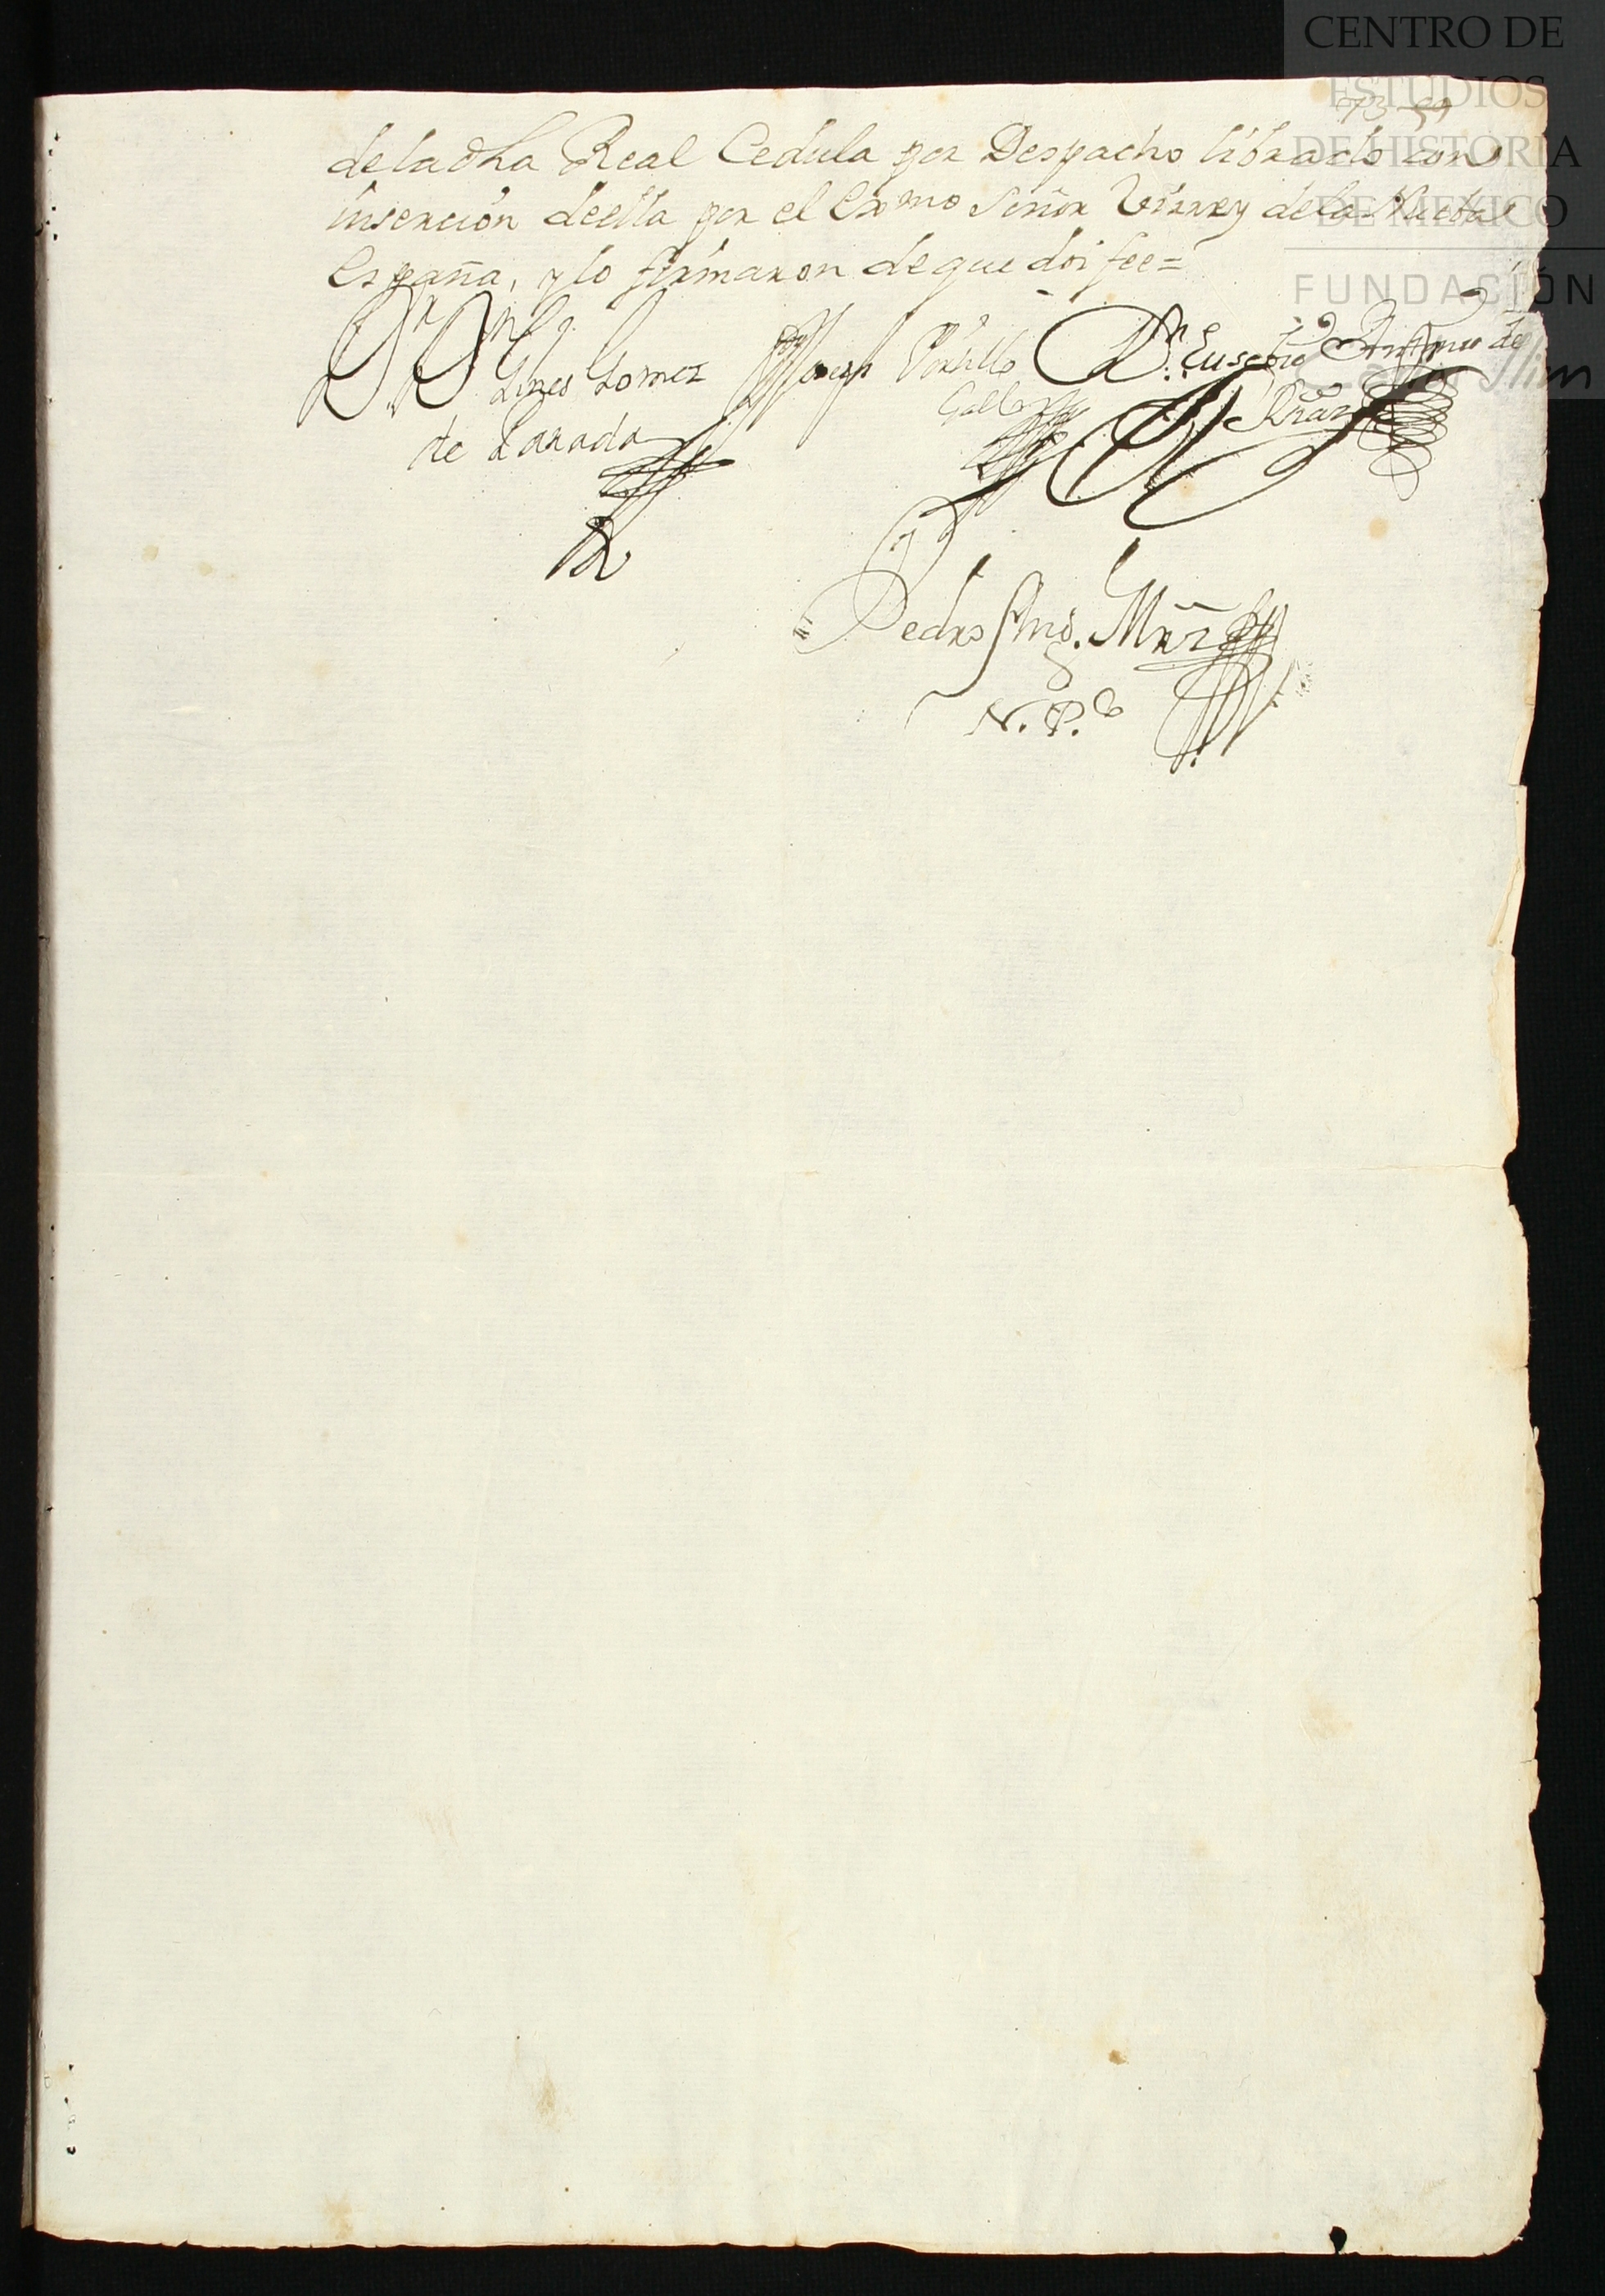 CENTRO DE
ESTUDIOS
DE HISTORIA
DE MEXICO
FUNDACIÓN
Carlos Slim
dela dha Real Cedula por Despacho librado con
insercion deella por el Exmo Señor Virrey dela Nueba
España, y lo firmaron deque doi fee=
Dr. Dn. Gines Gomez
de Parada
Joseph Portillo
Gallo
Dn. Eusebio Antonio de
Pedro Anto. Mrñz
N. P.co